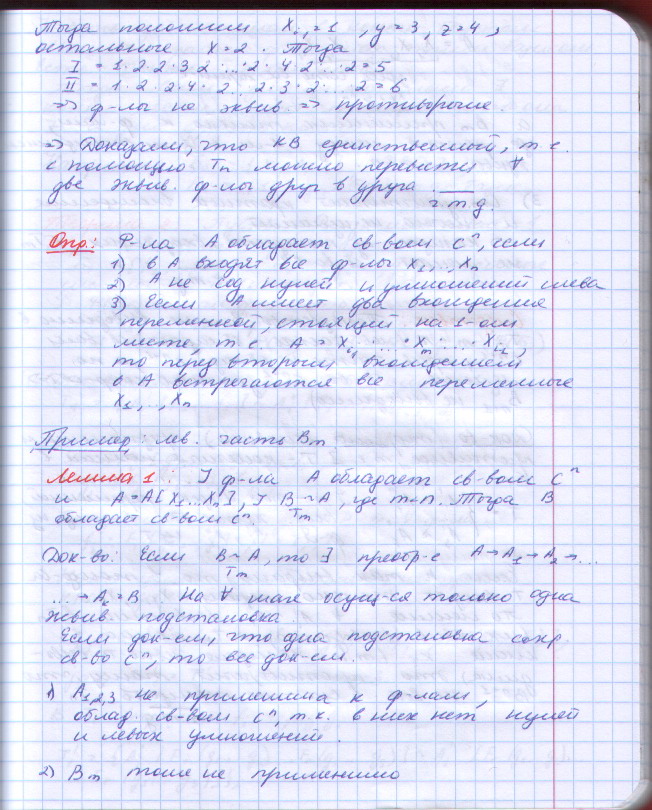 Тогда положим x_{i_1}=1, y=3, z=4,
остальное x=2. Тогда
I = 1·2·2·3·2·...·2·4·2·...·2=5
II = 1·2·2·4·2...2·3·2·...2=6
=> ф-лы не эквив. => противоречие.
=> Доказали, что КВ единственный, т.е.
с помощью Tn можно перевести ∀
две эквив. ф-лы друг в друга.
ч.т.д.
Опр.: Ф-ла A обладает св-вом C^n, если
1) в A входят все ф-лы x_1,..,x_n
2) A не сод нулей и умножений слева
3) Если A имеет два вхождения
переменной, стоящей на 1-ом
месте, т.е. A = x_{i_1}·...·x_m·...·x_{i_1},
то перед вторым вхождением
в A встречаются все переменные
x_1,..,x_n
Пример: лев. часть B_m
Лемма 1: ] ф-ла A обладает св-вом C^n
и A=A[x_1...x_n], ] B ~ A, где m<n. Тогда B
T_m
обладает св-вом C^n.
Док-во: Если B ~ A, то ∃ преобр-е A→A_1→A_2→...
T_m
...→A_k=B На ∀ шаге осущ-ся только одна
эквив. подстановка.
Если док-ем, что одна подстановка сохр.
св-во C^n, то все док-ем.
1) A_{1,2,3} не применима к ф-лам,
облад. св-вом C^n, т.к. в них нет нулей
и левых умножений.
2) B_m тоже не применимо